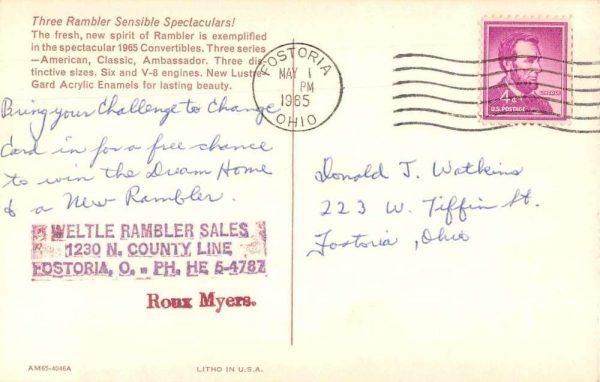 Three Rambler Sensible Spectaculars!
The fresh, new spirit of Rambler is exemplified
in the spectacular 1965 Convertibles. Three series
—American, Classic, Ambassador. Three dis-
tinctive sizes. Six and V-8 engines. New Lustre-
Gard Acrylic Enamels for lasting beauty.
Bring your Challenge to Change
Card in for a free chance
to win the Dream Home
& a New Rambler.
WELTLE RAMBLER SALES
1230 N. COUNTY LINE
FOSTORIA, O. - PH. HE 5-4787
Roux Myers.
AM65-4046A
LITHO IN U.S.A.
FOSTORIA
MAY 1
PM
1965
OHIO
4¢
U.S. POSTAGE
Donald J. Watkins
223 W. Tiffin St.
Fostoria, Ohio